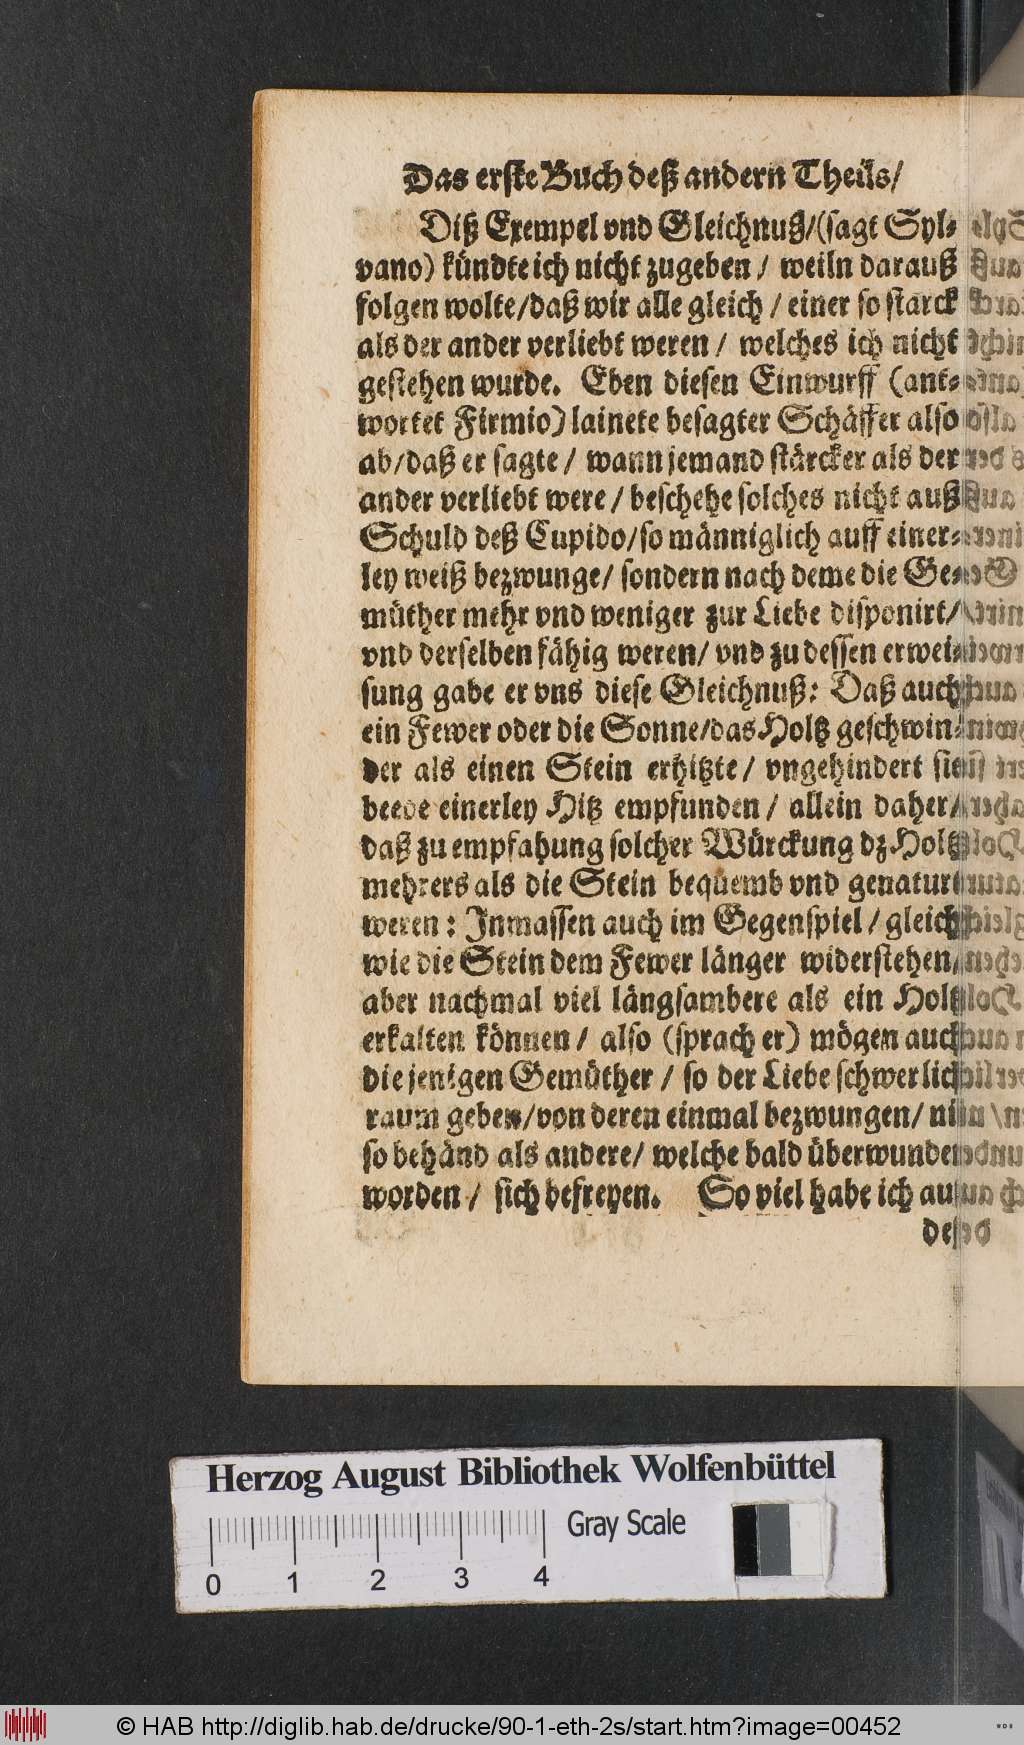 Das erste Buch deß andern Theils/
Diß Exempel vnd Gleichnuß/(sagt Syl-
vano) kündte ich nicht zugeben / weiln darauß
folgen wolte/daß wir alle gleich / einer so starck
als der ander verliebt weren / welches ich nicht
gestehen wurde. Eben diesen Einwurff (ant-
wortet Firmio) lainete besagter Schäffer also
ab/daß er sagte / wann jemand stärcker als der
ander verliebt were / beschehe solches nicht auß
Schuld deß Cupido/so männiglich auff einer-
ley weiß bezwunge/ sondern nach deme die Ge-
müther mehr vnd weniger zur Liebe disponirt/
vnd derselben fähig weren/ vnd zu dessen erwei-
sung gabe er vns diese Gleichnuß: Daß auch
ein Fewer oder die Sonne/das Holtz geschwin-
der als einen Stein erhitzte / vngehindert sie
beede einerley Hitz empfunden / allein daher/
daß zu empfahung solcher Würckung dz Holtz
mehrers als die Stein bequemb vnd genaturt
weren : Inmassen auch im Gegenspiel / gleich
wie die Stein dem Fewer länger widerstehen/
aber nachmal viel längsambere als ein Holtz
erkalten können / also (sprach er) mögen auch
die jenigen Gemüther / so der Liebe schwerlich
raum geben/von deren einmal bezwungen/ nit
so behänd als andere/ welche bald überwunden
worden / sich befreyen. So viel habe ich auß
des
Herzog August Bibliothek Wolfenbüttel
Gray Scale
0 1 2 3 4
© HAB http://diglib.hab.de/drucke/90-1-eth-2s/start.htm?image=00452